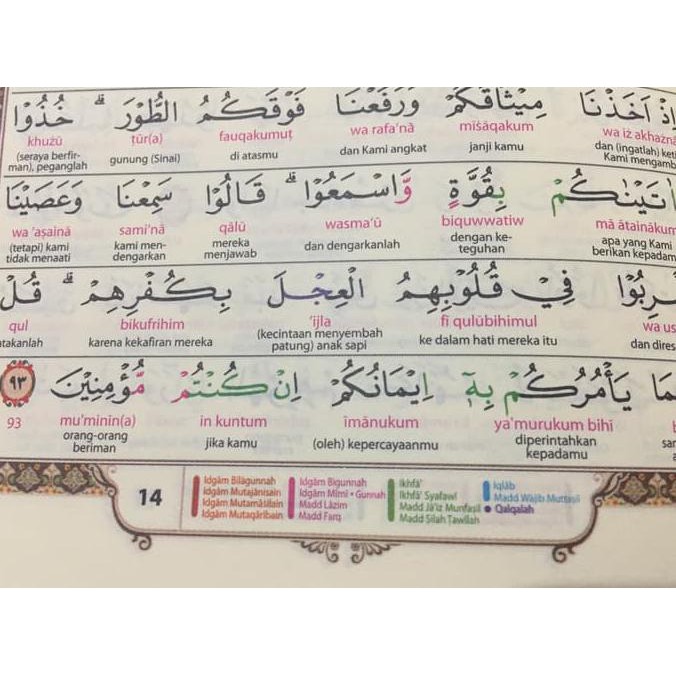 اِذْ اَخَذْنَا مِيْثَاقَكُمْ وَرَفَعْنَا فَوْقَكُمُ الطُّوْرَۗ خُذُوْا
wa iż akhażnā mīṡāqakum wa rafa'nā fauqakumuṭ ṭūr(a) khużū
dan (ingatlah) janji kamu dan Kami angkat di atasmu gunung (Sinai) (seraya berfir-
man), peganglah
اٰتَيْنٰكُمْ بِقُوَّةٍ وَّاسْمَعُوْاۗ قَالُوْا سَمِعْنَا وَعَصَيْنَا
mā ātainākum biquwwatiw wasma'ū qālū sami'nā wa 'aṣainā
apa yang Kami dengan ke- dan dengarkanlah mereka kami men- (tetapi) kami
berikan kepadam teguhan menjawab dengarkan tidak menaati
رِبُوْا فِيْ قُلُوْبِهِمُ الْعِجْلَ بِكُفْرِهِمْۗ قُلْ
wa us fī qulūbihimul 'ijla bikufrihim qul
dan dires ke dalam hati mereka itu (kecintaan menyembah karena kekafiran mereka atakanlah
patung) anak sapi
مَا يَأْمُرُكُمْ بِهٖٓ اِيْمَانُكُمْ اِنْ كُنْتُمْ مُّؤْمِنِيْنَ ٩٣
ya'murukum bihī īmānukum in kuntum mu'minīn(a) 93
diperintahkan (oleh) kepercayaanmu jika kamu orang-orang
kepadamu beriman
14
Idgām Bilāgunnah
Idgām Mutajānisain
Idgām Mutamāṡilain
Idgām Mutaqāribain
Idgām Bigunnah
Idgām Mimi • Gunnah
Madd Lāzim
Madd Farq
Ikhfā'
Ikhfā' Syafawī
Madd Jā'iz Munfaṣil
Madd Silah Ṭawīlah
Iqlāb
Madd Wājib Muttaṣil
Qalqalah